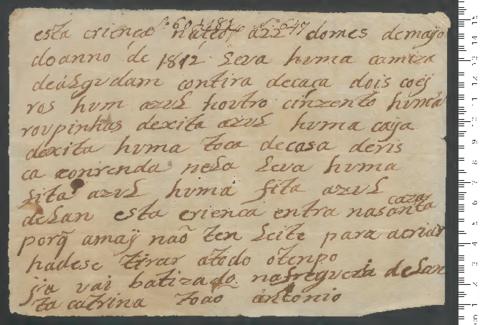 f. 60 1481 N. 647
esta crienca nateo a 22 domes demajo
doanno de 1812 Leva huma camiza
deálgudam contira decaça dois coej
ros hum azul houtro cinzento huma
roupinhas dexita azul huma caija
dexita huma toca decasa deris
ca conrenda nela Leva huma
fita azul huma fita azul
caza
delan esta crienca entra nasanta
porq amaj naõ ten Leite para acriar
hadese tirar atodo otenpo
ja vai batizado nafregueza delSan
ta catrina Joaõ antonio